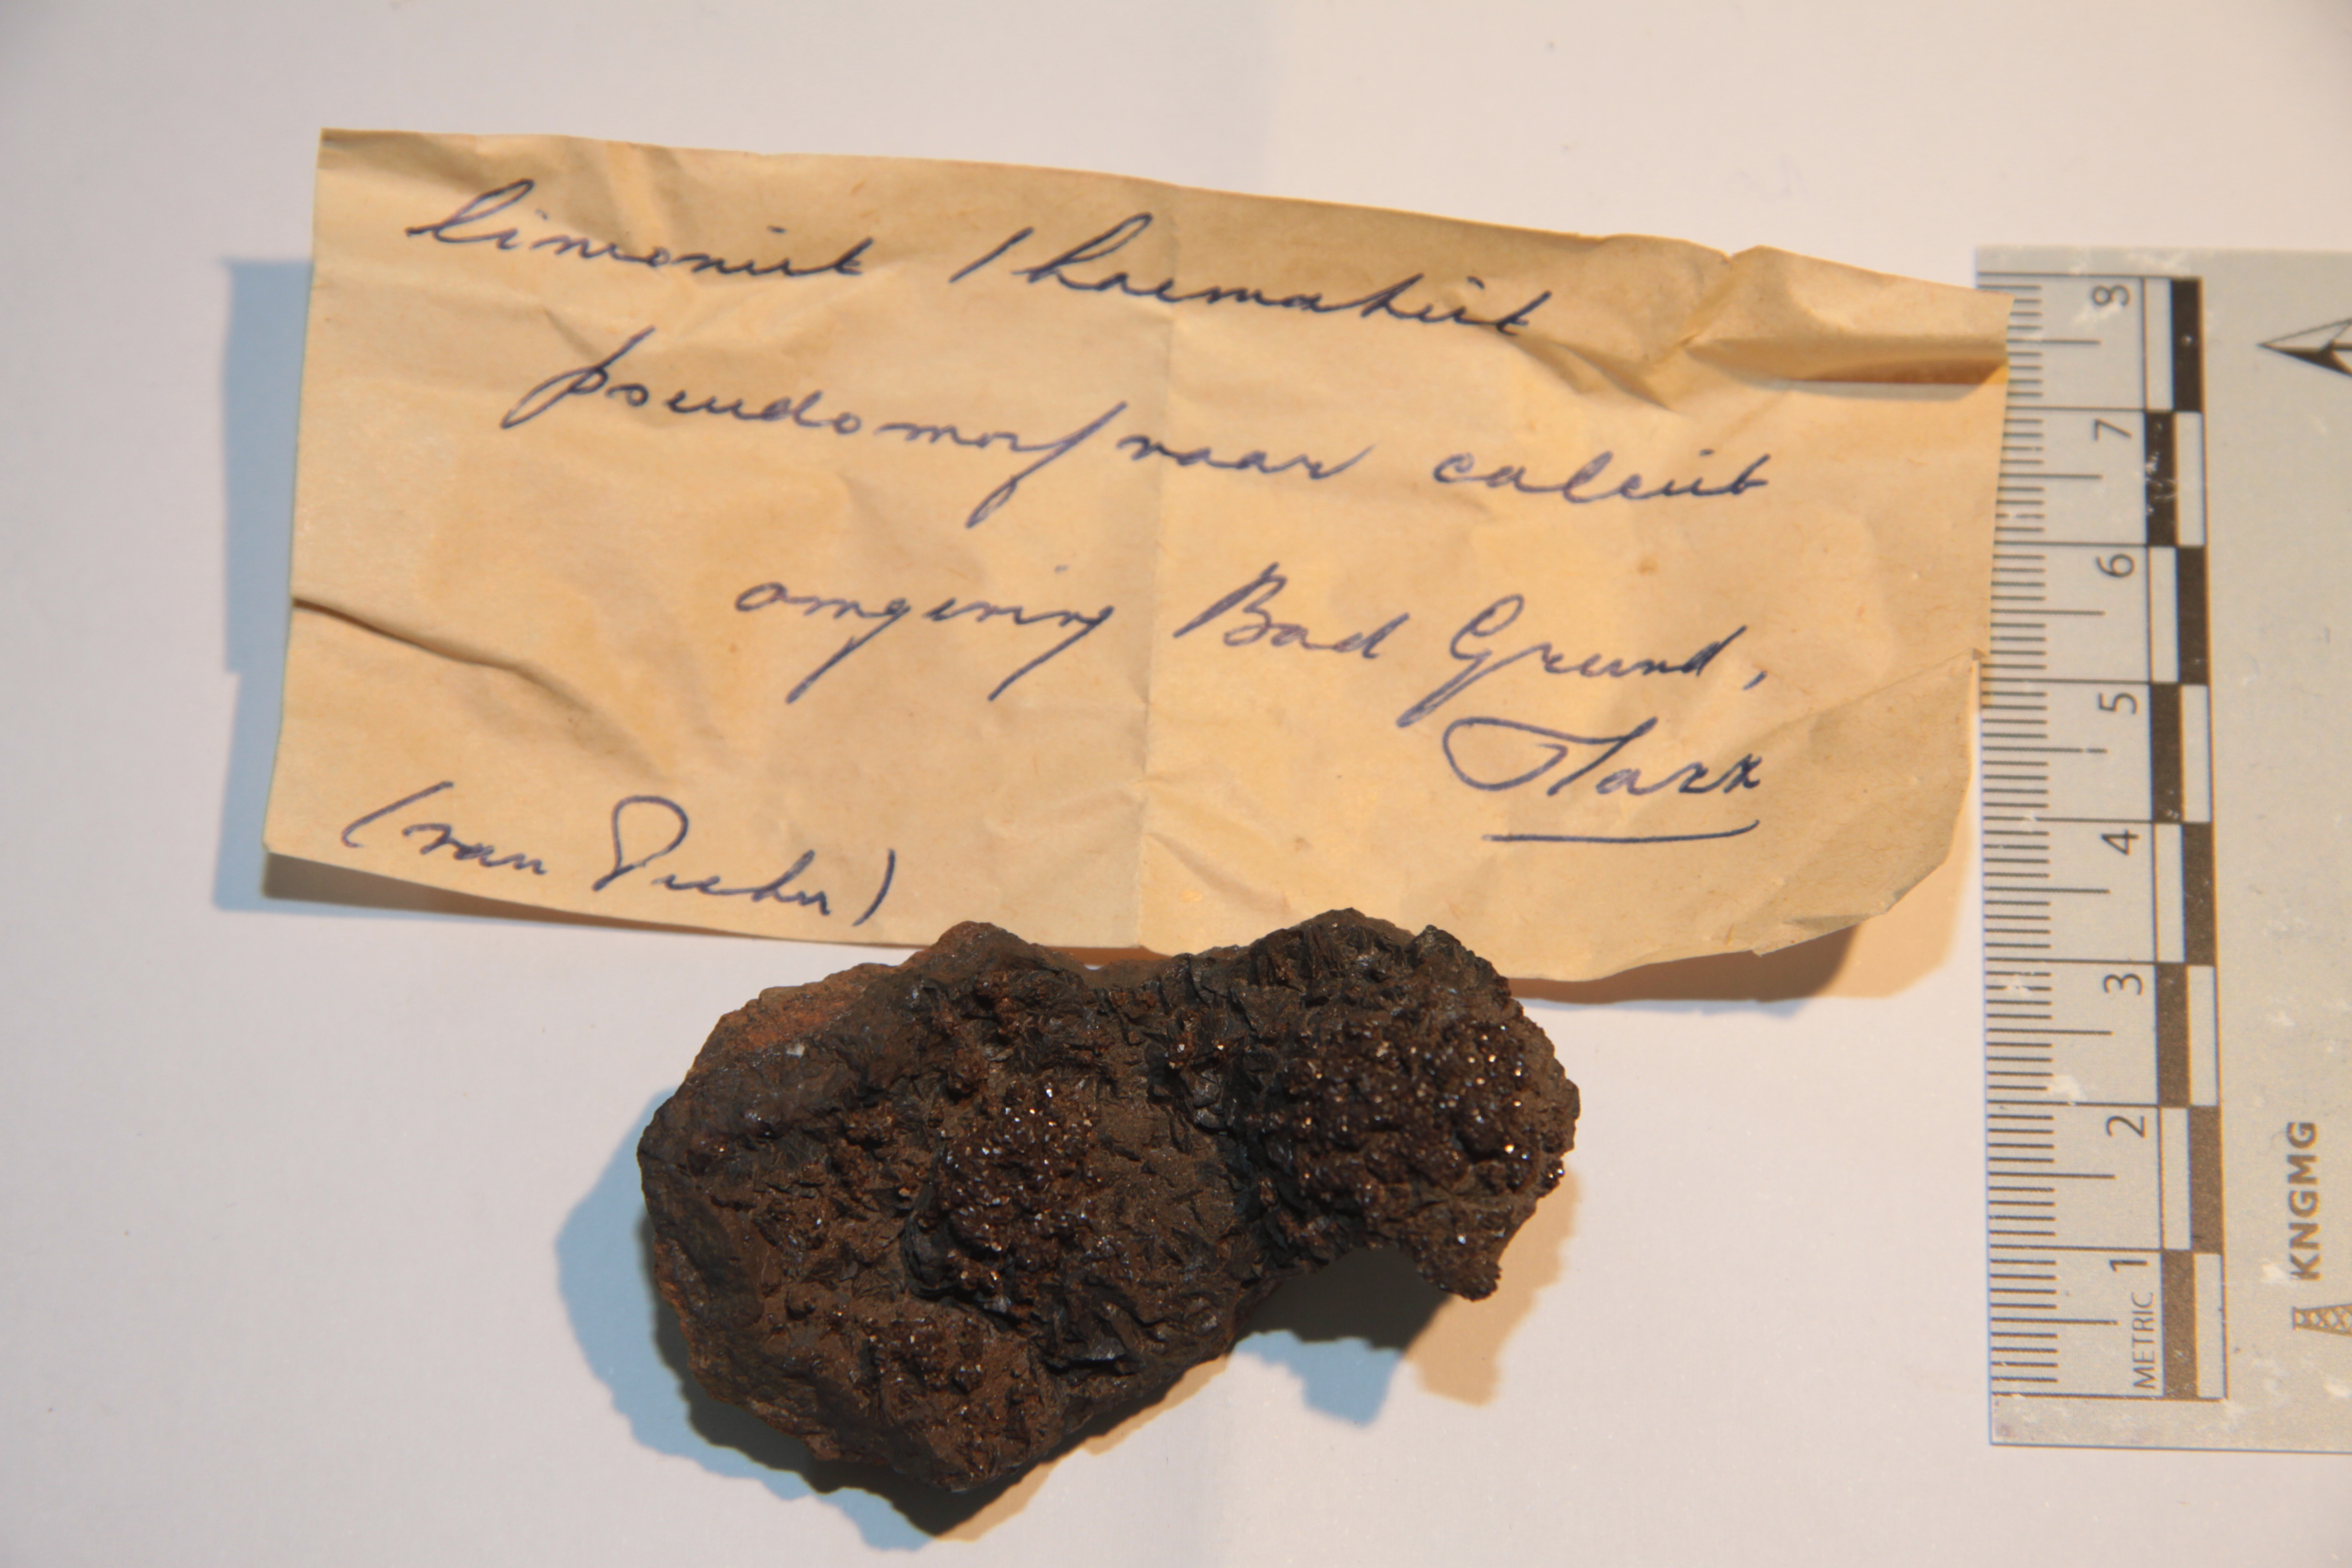 limoniet / haematiet
pseudomorf naar calciet
omgeving Bad Grund,
Harz
(van
8
7
6
5
4
3
2
1
METRIC
KNGMG